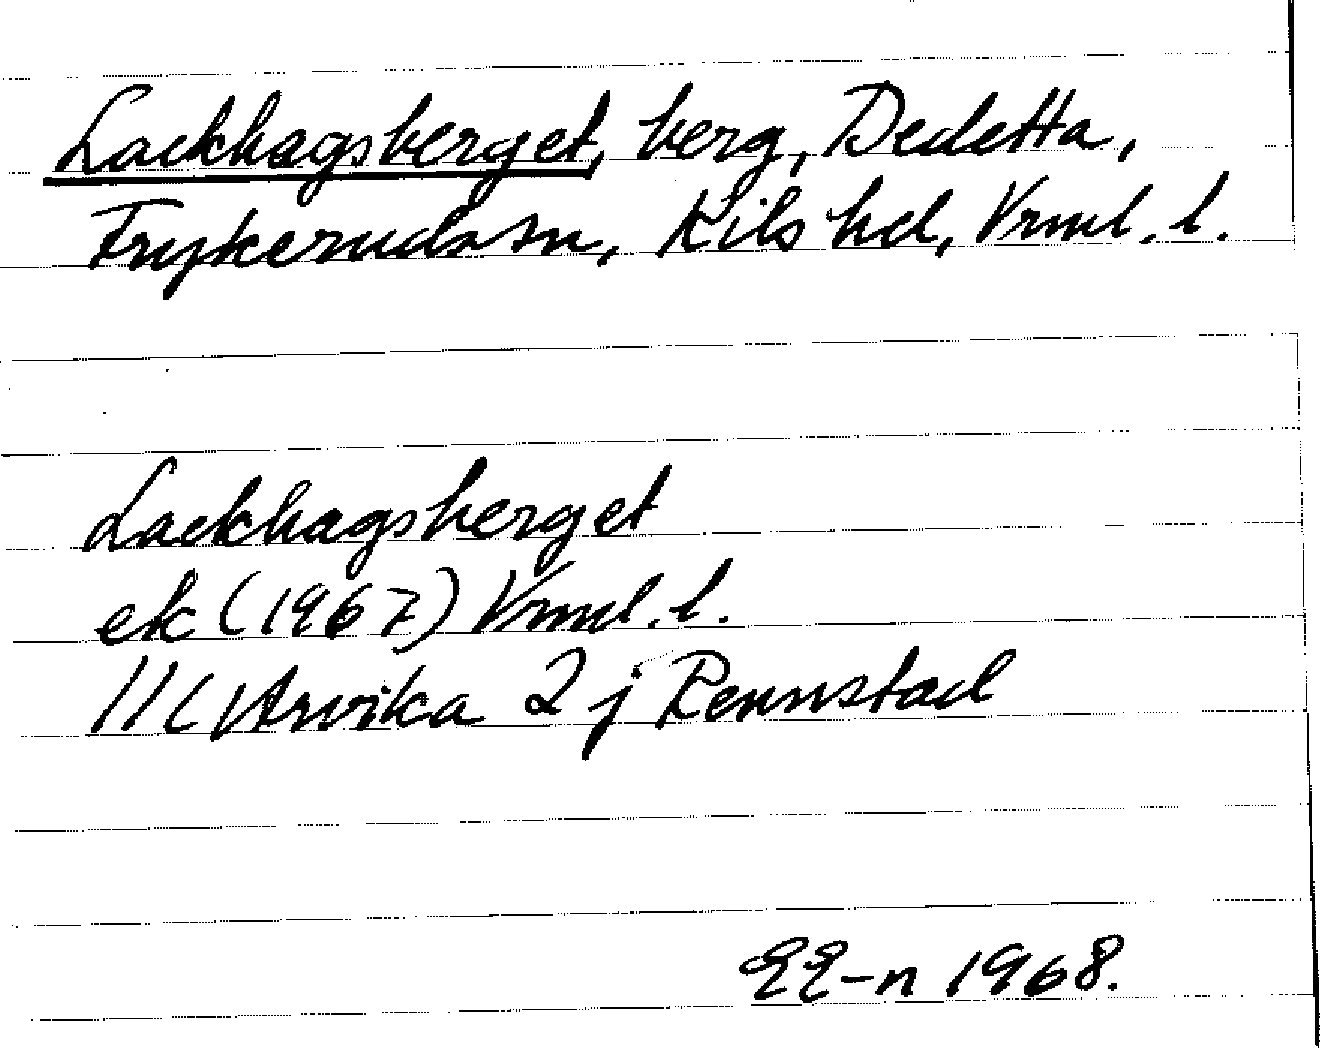 Lackhagsberget, berg, Dedetta,
Frykerudssn, Kils hd, Vrml. l.
Lackhagsberget
ek (1967) Vrml. l.
11C Arvika 2 j Rennstad
EE-n 1968.